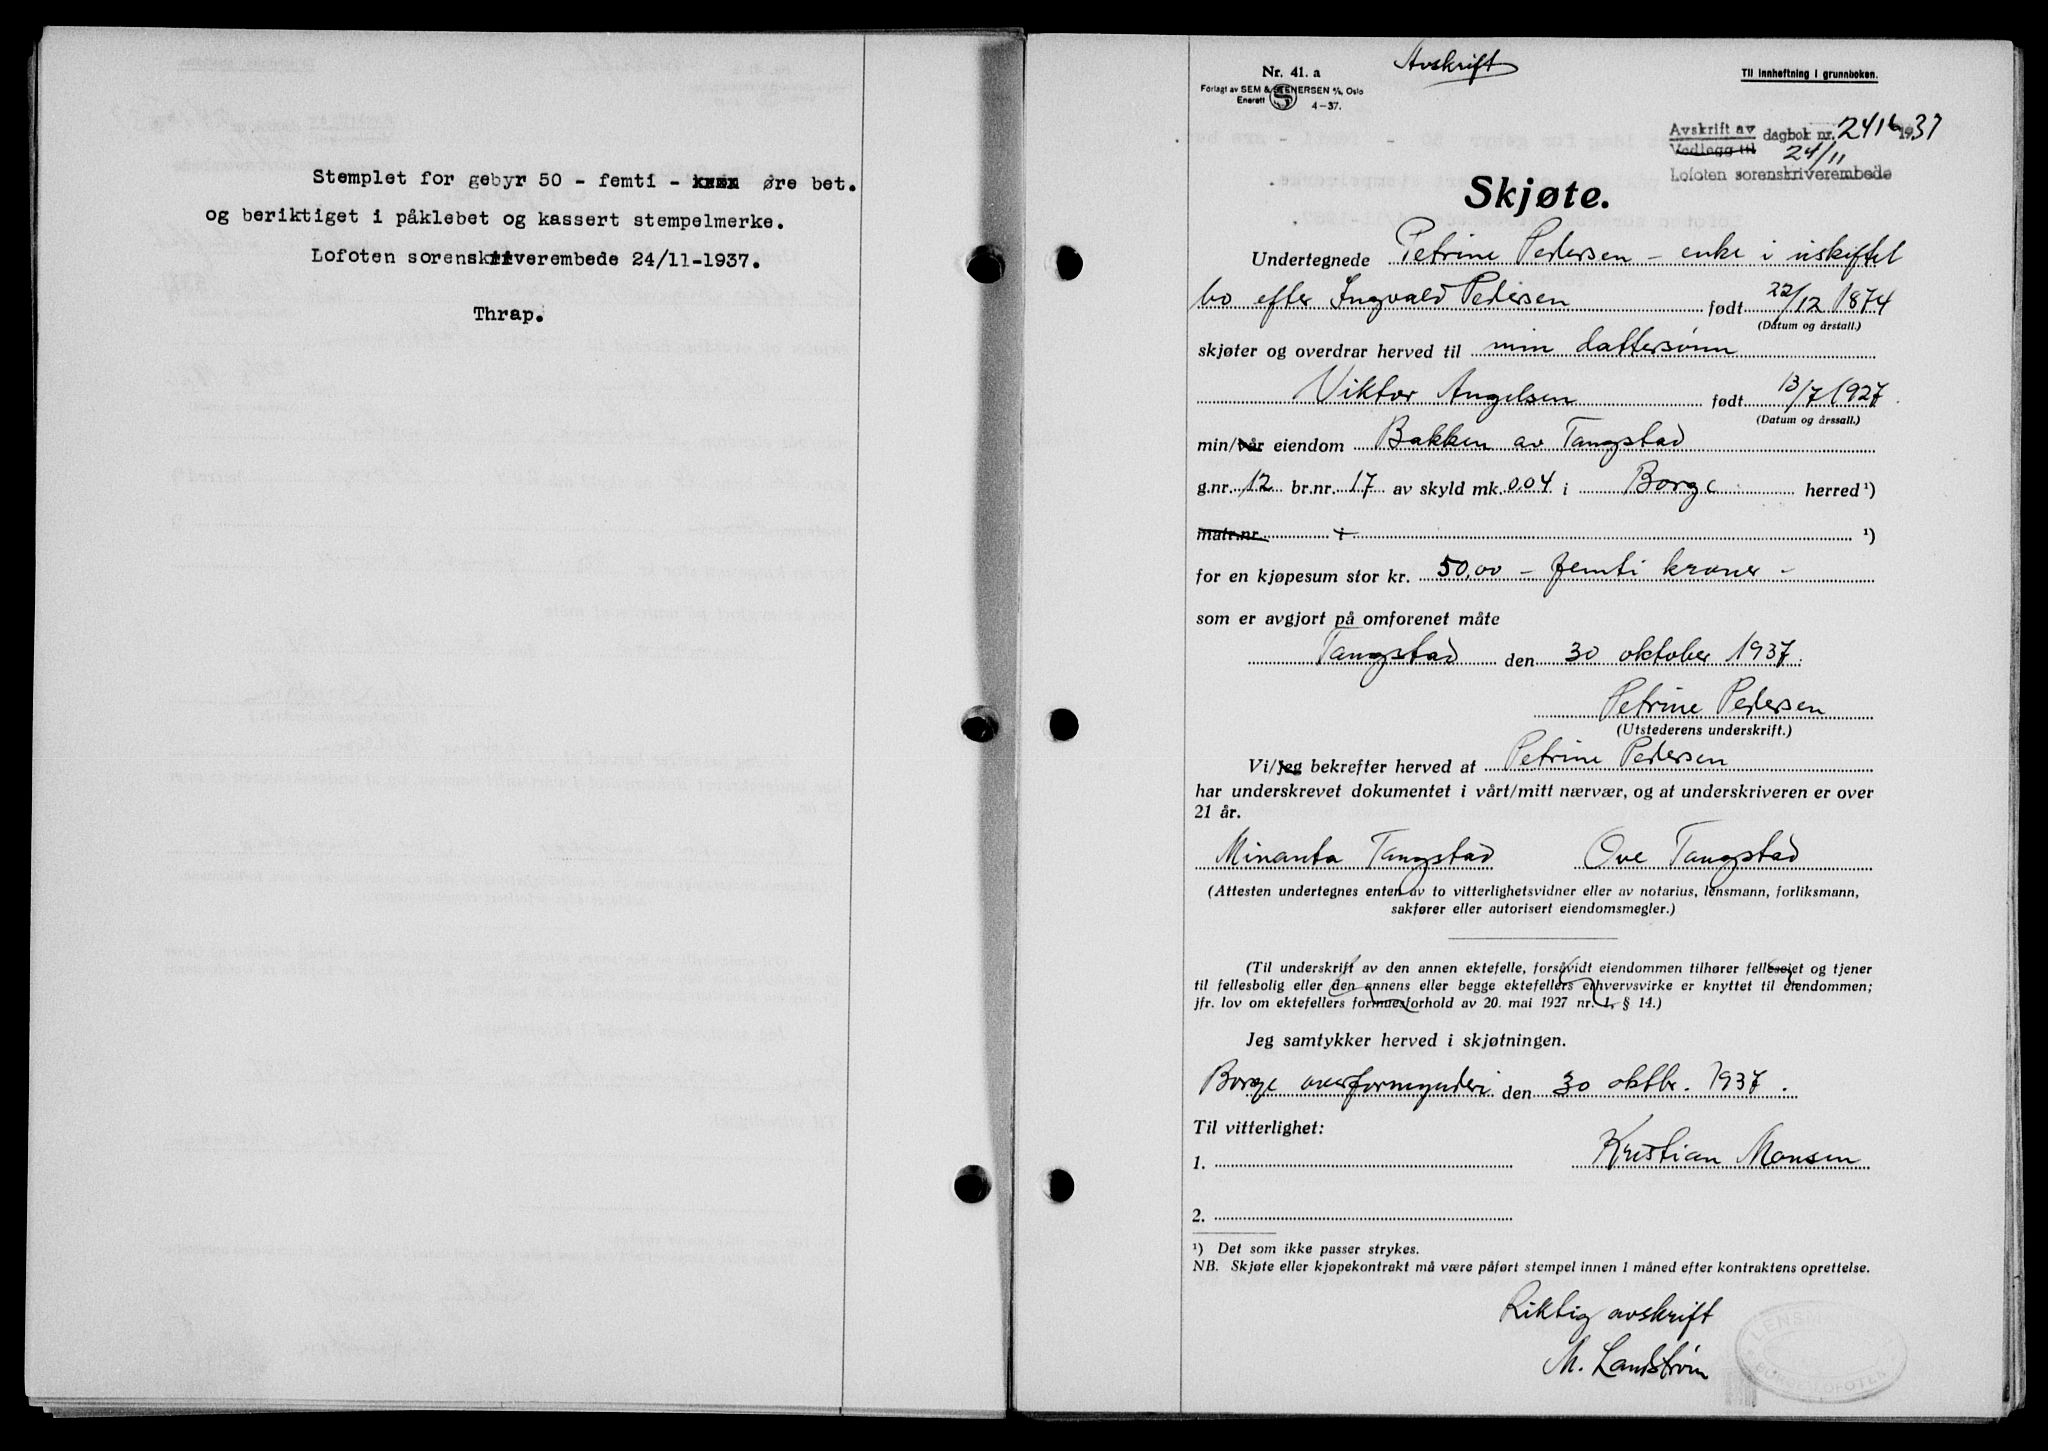 Stemplet for gebyr 50 - femti - øre bet.
og beriktiget i påklebet og kassert stempelmerke.
Lofoten sorenskriverembede 24/11-1937.
Thrap.
Nr. 41. a
Forlagt av SEM & STENERSEN A/S, Oslo
Enerett 4-37.
Avskrift
Til innheftning i grunnboken.
Avskrift av dagbok nr. 2416 1937
Vedlegg til 24/11
Lofoten sorenskriverembede
Skjøte.
Undertegnede Petrine Pedersen - enke i uskiftet
bo efter Ingvald Pedersen født 22/12 1874
(Datum og årstall.)
skjøter og overdrar herved til min dattersønn
Viktor Angelsen født 13/7 1927
(Datum og årssall.)
min/vår eiendom Bakken av Tangstad
g.nr. 12 br.nr. 17 av skyld mk. 0.04 i Borge herred¹)
matr.nr. i ¹)
for en kjøpesum stor kr. 50,00 - femti kroner -
som er avgjort på omforenet måte
Tangstad den 30 oktober 1937.
Petrine Pedersen
(Utstederens underskrift.)
Vi/jeg bekrefter herved at Petrine Pedersen
har underskrevet dokumentet i vårt/mitt nærvær, og at underskriveren er over
21 år.
Minanta Tangstad Ove Tangstad
(Attesten undertegnes enten av to vitterlighetsvidner eller av notarius, lensmann, forliksmann,
sakfører eller autorisert eiendomsmegler.)
(Til underskrift av den annen ektefelle, forsåvidt eiendommen tilhører fellesejet og tjener
til fellesbolig eller den annens eller begge ektefellers erhvervsvirke er knyttet til eiendommen;
jfr. lov om ektefellers formuesforhold av 20. mai 1927 nr. 1, § 14.)
Jeg samtykker herved i skjøtningen.
Borge overformynderi den 30 oktbr. 1937.
Til vitterlighet:
Kristian Monsen
1.
2.
¹) Det som ikke passer strykes.
NB. Skjøte eller kjøpekontrakt må være påført stempel innen 1 måned efter kontraktens oprettelse.
Riktig avskrift
M. Landstrøm